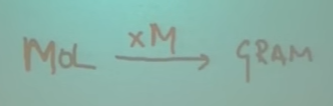 MOL xM → GRAM